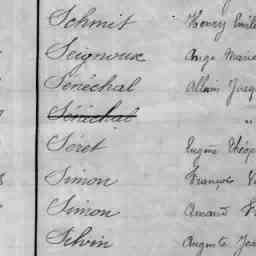 Schmit Henry Emile
Seignoux Ange Marie
Sénéchal Allain Jacq
Sénéchal "
Séret Eugène Théop
Simon François
Simon Amand
Silvin Auguste